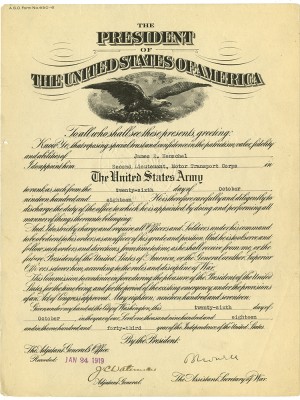 THE
PRESIDENT
OF
THE UNITED STATES OF AMERICA
To all who shall see these presents, greeting:
Know Ye, that reposing special trust and confidence in the patriotism, valor, fidelity
and abilities of James H.
I do appoint him Second Lieutenant, Motor Transport Corps in
The United States Army
to rank as such from the twenty-sixth day of October
nineteen hundred and eighteen He is therefore carefully and diligently to
discharge the duty of the office to which he is appointed by doing and performing all
manner of things thereunto belonging.
And I do strictly charge and require all Officers and Soldiers under his command
to be obedient to his orders as an officer of his grade and position. And he is to observe and
follow such orders and directions, from time to time, as he shall receive from me, or the
future President of the United States of America, or the General or other Superior
Officers set over him, according to the rules and discipline of War.
This commission to continue in force during the pleasure of the President of the United
States, for the time being, and for the period of the existing emergency, under the provisions
of an Act of Congress approved May eighteen, nineteen hundred and seventeen.
Given under my hand at the City of Washington, this twenty-sixth day of
October in the year of our Lord one thousand nine hundred and eighteen
and in the one hundred and forty-third year of the Independence of the United States.
By the President:
The Adjutant General's Office.
Recorded: JAN 24 1919
Adjutant General.
The Assistant Secretary of War.